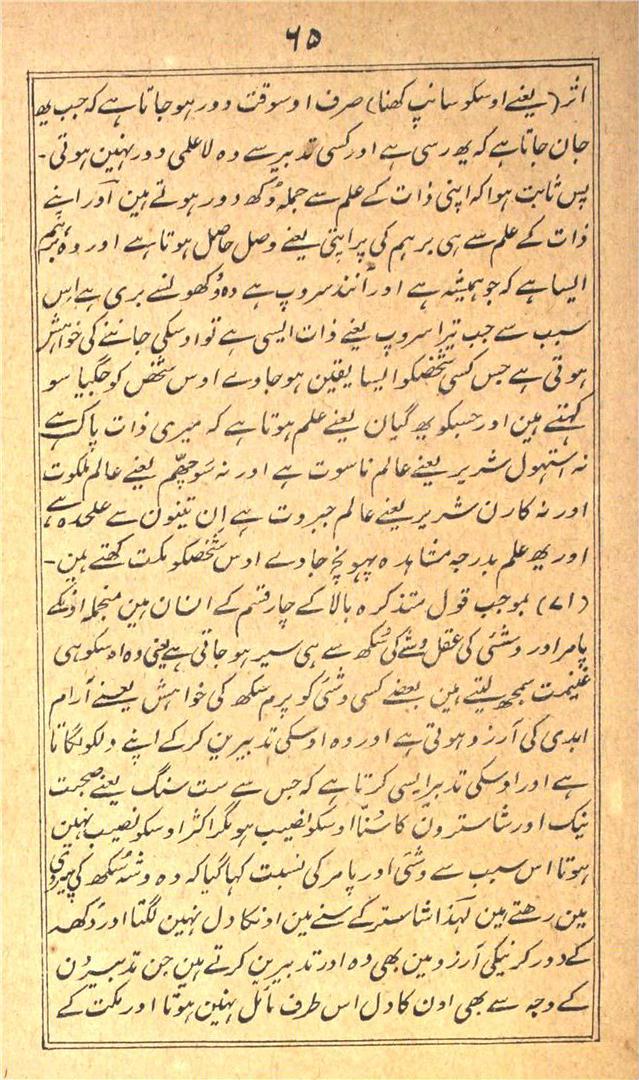 ٦٥
اثر (یعنے اوسکو سانپ کھنا) صرف اوسوقت دور ہوجاتا ہے کہ جب یھ
جان جاتا ہے کہ یھ رسی ہے اور کسی تدبیر سے وہ لاعلمی دور نہین ہوتی۔
پس ثابت ہوا کہ اپنی ذات کے علم سے جملہ دُکھ دور ہوتے ہین اور اپنے
ذات کے علم سے ہی برہم کی پراپتی یعنے وصل حاصل ہوتا ہے اور وہ برہم
ایسا ہے کہ جو ہمیشہ ہے اور آنند سروپ ہے وہ دُکھو نسے بری ہے اس
سبب سے جب تیرا سروپ یعنے ذات ایسی ہے تو اوسکی جاننے کی خواہش
ہوتی ہے جس کسی شخصکو ایسا یقین ہو جاوے اوس شخص کو جگیاسو
کہتے ہین اور جسکو یھ گیان یعنے علم ہوتا ہے کہ میری ذات پاک ہے
نہ استہول شریر یعنے عالم ناسوت ہے اور نہ سوچھم یعنے عالم ملکوت
اور نہ کارن شریر یعنے عالم جبروت ہے ان تینون سے علحدہ ہے
اور یھ علم بدرجہ مشاہدہ پہونچ جاوے اوس شخصکو مکت کھتے ہین۔
(۷۱) بموجب قول متذکرہ بالا کے چار قسم کے انسان ہین منجملہ اونکے
پامر اور وشئی کی عقل وشے کی سُکھ سے ہی سیر ہو جاتی ہے یعنی وہ اوسکو ہی
غنیمت سمجھ لیتے ہین بعضے کسی وشئی کو پرم سکھ کی خواہش یعنے آرام
ابدی کی آرزو ہوتی ہے اور وہ اوسکی تدبیرین کرکے اپنے دلکو لگاتا
ہے اور اوسکی تدبیر ایسی کرتا ہے کہ جس سے ست سنگ یعنے صحبت
نیک اور شاسترون کا سننا اوسکو نصیب ہو مگر اکثر اوسکو نصیب نہین
ہوتا اس سبب سے وشئی اور پامر کی نسبت کہا گیا کہ وہ وشے سُکھ کی پیروی
مین رھتے ہین لہذا شاستر کے سننے مین اونکا دل نہین لگتا اور دُکھہ
کے دور کرنیکی آرزو مین بھی وہ اور تدبیرین کرتے ہین جن تدبیرون
کے وجہ سے بھی اون کا دل اس طرف مائل نہین ہوتا اور مکت کے